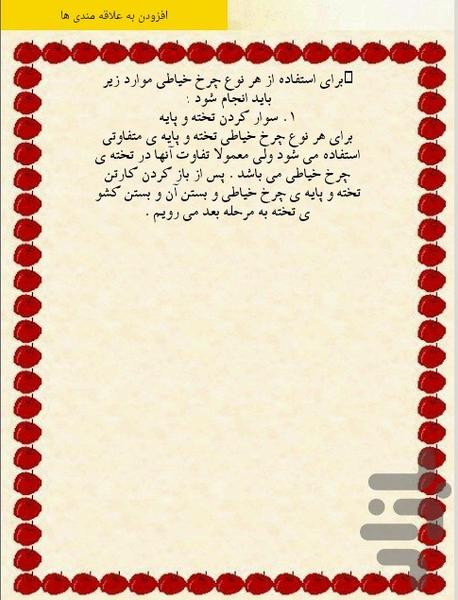 افزودن به علاقه مندی ها
برای استفاده از هر نوع چرخ خیاطی موارد زیر
باید انجام شود :
۱. سوار کردن تخته و پایه
برای هر نوع چرخ خیاطی تخته و پایه ی متفاوتی
استفاده می شود ولی معمولا تفاوت آنها در تخته ی
چرخ خیاطی می باشد . پس از باز کردن کارتن
تخته و پایه ی چرخ خیاطی و بستن آن و بستن کشو
ی تخته به مرحله بعد می رویم .
بازار